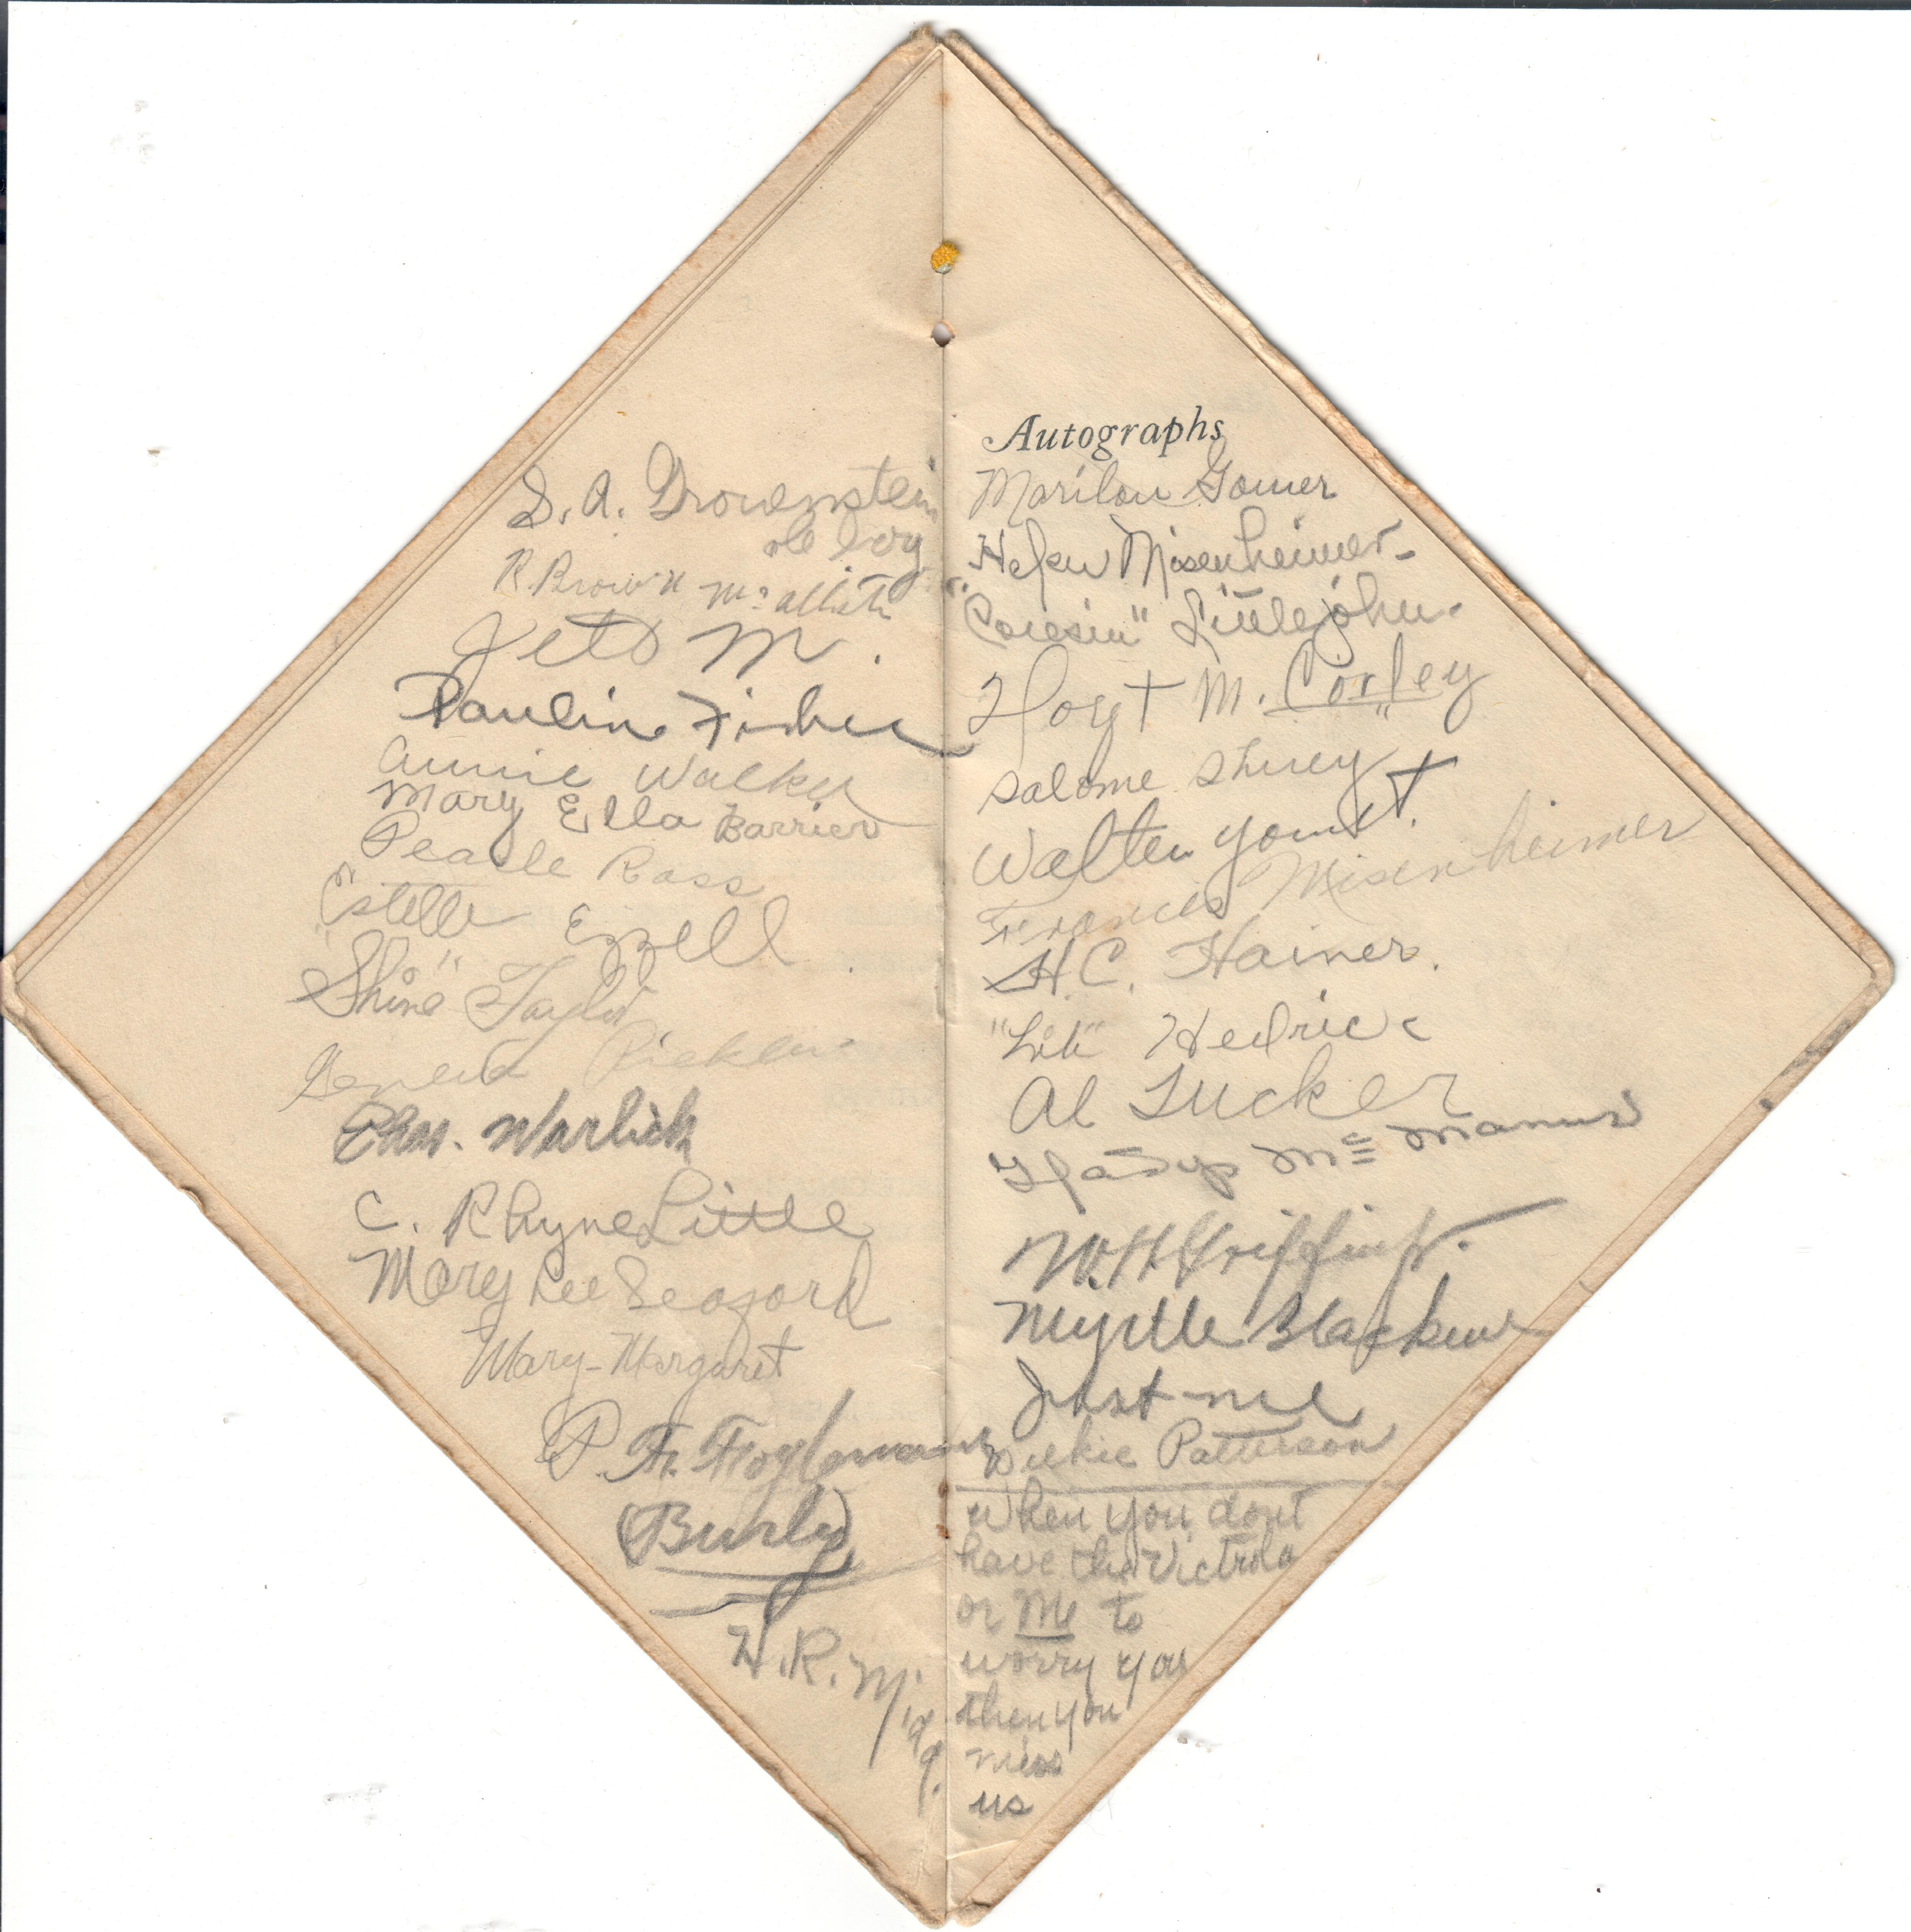 S. A. Brownstein
ole boy
R Brown McAllister
Jeto M.
Pauline Fisher
Annie Walker
Mary Ella Barrier
Pearle Ross
Estelle Ezzell
"Shine" Taylor
Chas. Warlick
C. Rhyne Little
Mary Lee Seaford
Mary-Margaret
P. H. Fogleman
(Burly)
H. R. Midg.
Autographs
Marilou Gomer
Helen Misenheimer-
"Cousin" Littlejohn.
Hoyt M. Corley
Salome Shirey
Walter Yount.
Frances Misenheimer
H. C. Hainer.
"Lib" Hedrick
Al Tucker
McManus
W. H. Griffin Jr.
Myrtle Blackwe
Just-me
Wilkie Patterson
When you dont
have the Victrola
or Me to
worry you
then you
miss
us